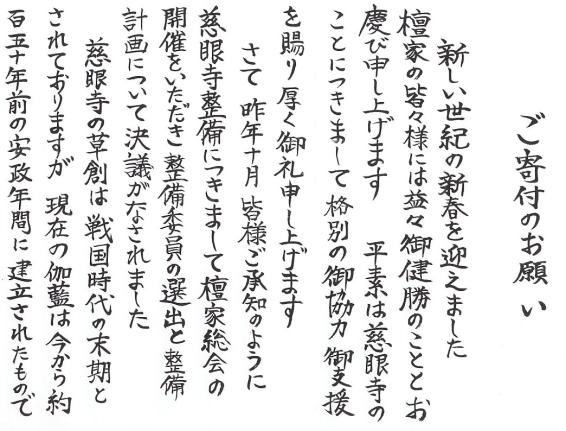 ご寄付のお願い
新しい世紀の新春を迎えました
檀家の皆々様には益々御健勝のこととお
慶び申し上げます　平素は慈眼寺の
ことにつきまして格別の御協力御支援
を賜り厚く御礼申し上げます
さて　昨年十月　皆様ご承知のように
慈眼寺整備につきまして檀家総会の
開催をいただき整備委員の選出と整備
計画について決議がなされました
慈眼寺の草創は戦国時代の末期と
されておりますが　現在の伽藍は今から約
百五十年前の安政年間に建立されたもので